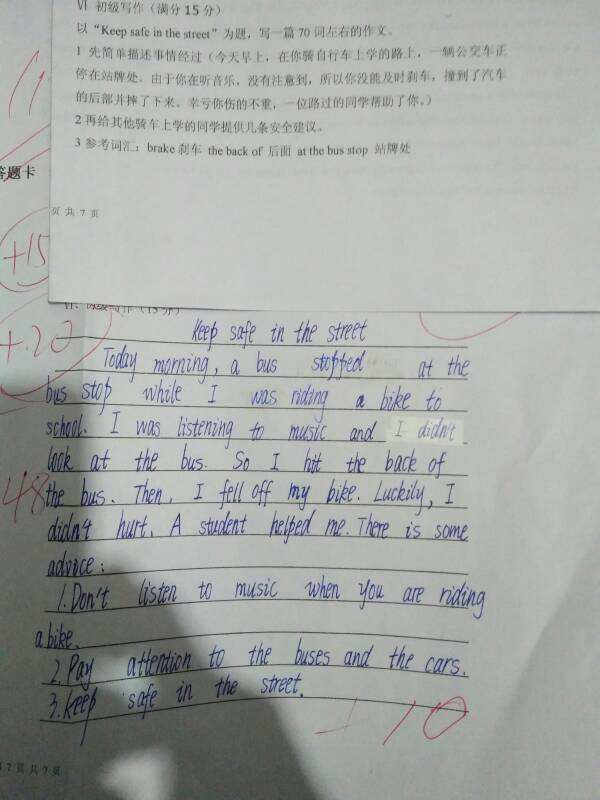 VI 初级写作（满分 15 分）
以“Keep safe in the street”为题，写一篇 70 词左右的作文。
1 先简单描述事情经过（今天早上，在你骑自行车上学的路上，一辆公交车正
停在站牌处。由于你在听音乐，没有注意到，所以你没能及时刹车，撞到了汽车
的后部并摔了下来。幸亏你伤的不重，一位路过的同学帮助了你。）
2 再给其他骑车上学的同学提供几条安全建议。
3 参考词汇：brake 刹车 the back of 后面 at the bus stop 站牌处
答题卡
页 共 7 页
+15
+20
48
Keep safe in the street
Today morning, a bus stopped at the
bus stop while I was riding a bike to
school. I was listening to music and I didn't
look at the bus. So I hit the back of
the bus. Then, I fell off my bike. Luckily, I
didn't hurt. A student helped me. There is some
advice:
1. Don't listen to music when you are riding
a bike.
2. Pay attention to the buses and the cars.
3. Keep safe in the street.
10
7 页 共 7 页